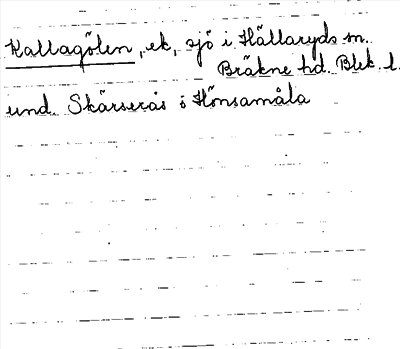 Kallagölen, ek, sjö i Hällaryds sn.
Bräkne hd. Blek. l.
und. Skärserås i Hönsamåla